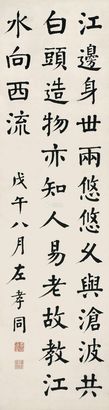 江邊身世兩悠悠久與滄波共
白頭造物亦知人易老故教江
水向西流
戊午八月左孝同